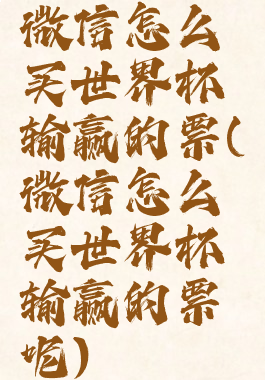 微信怎么
买世界杯
输赢的票(
微信怎么
买世界杯
输赢的票
呢)